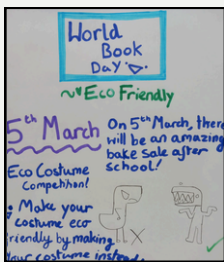 World
Book
Day
Eco Friendly
5th March
On 5th March, there
will be an amazing
bake Sale after
school!
Eco Costume
Competition!
Make your
costume eco
friendly by making
your costume instead